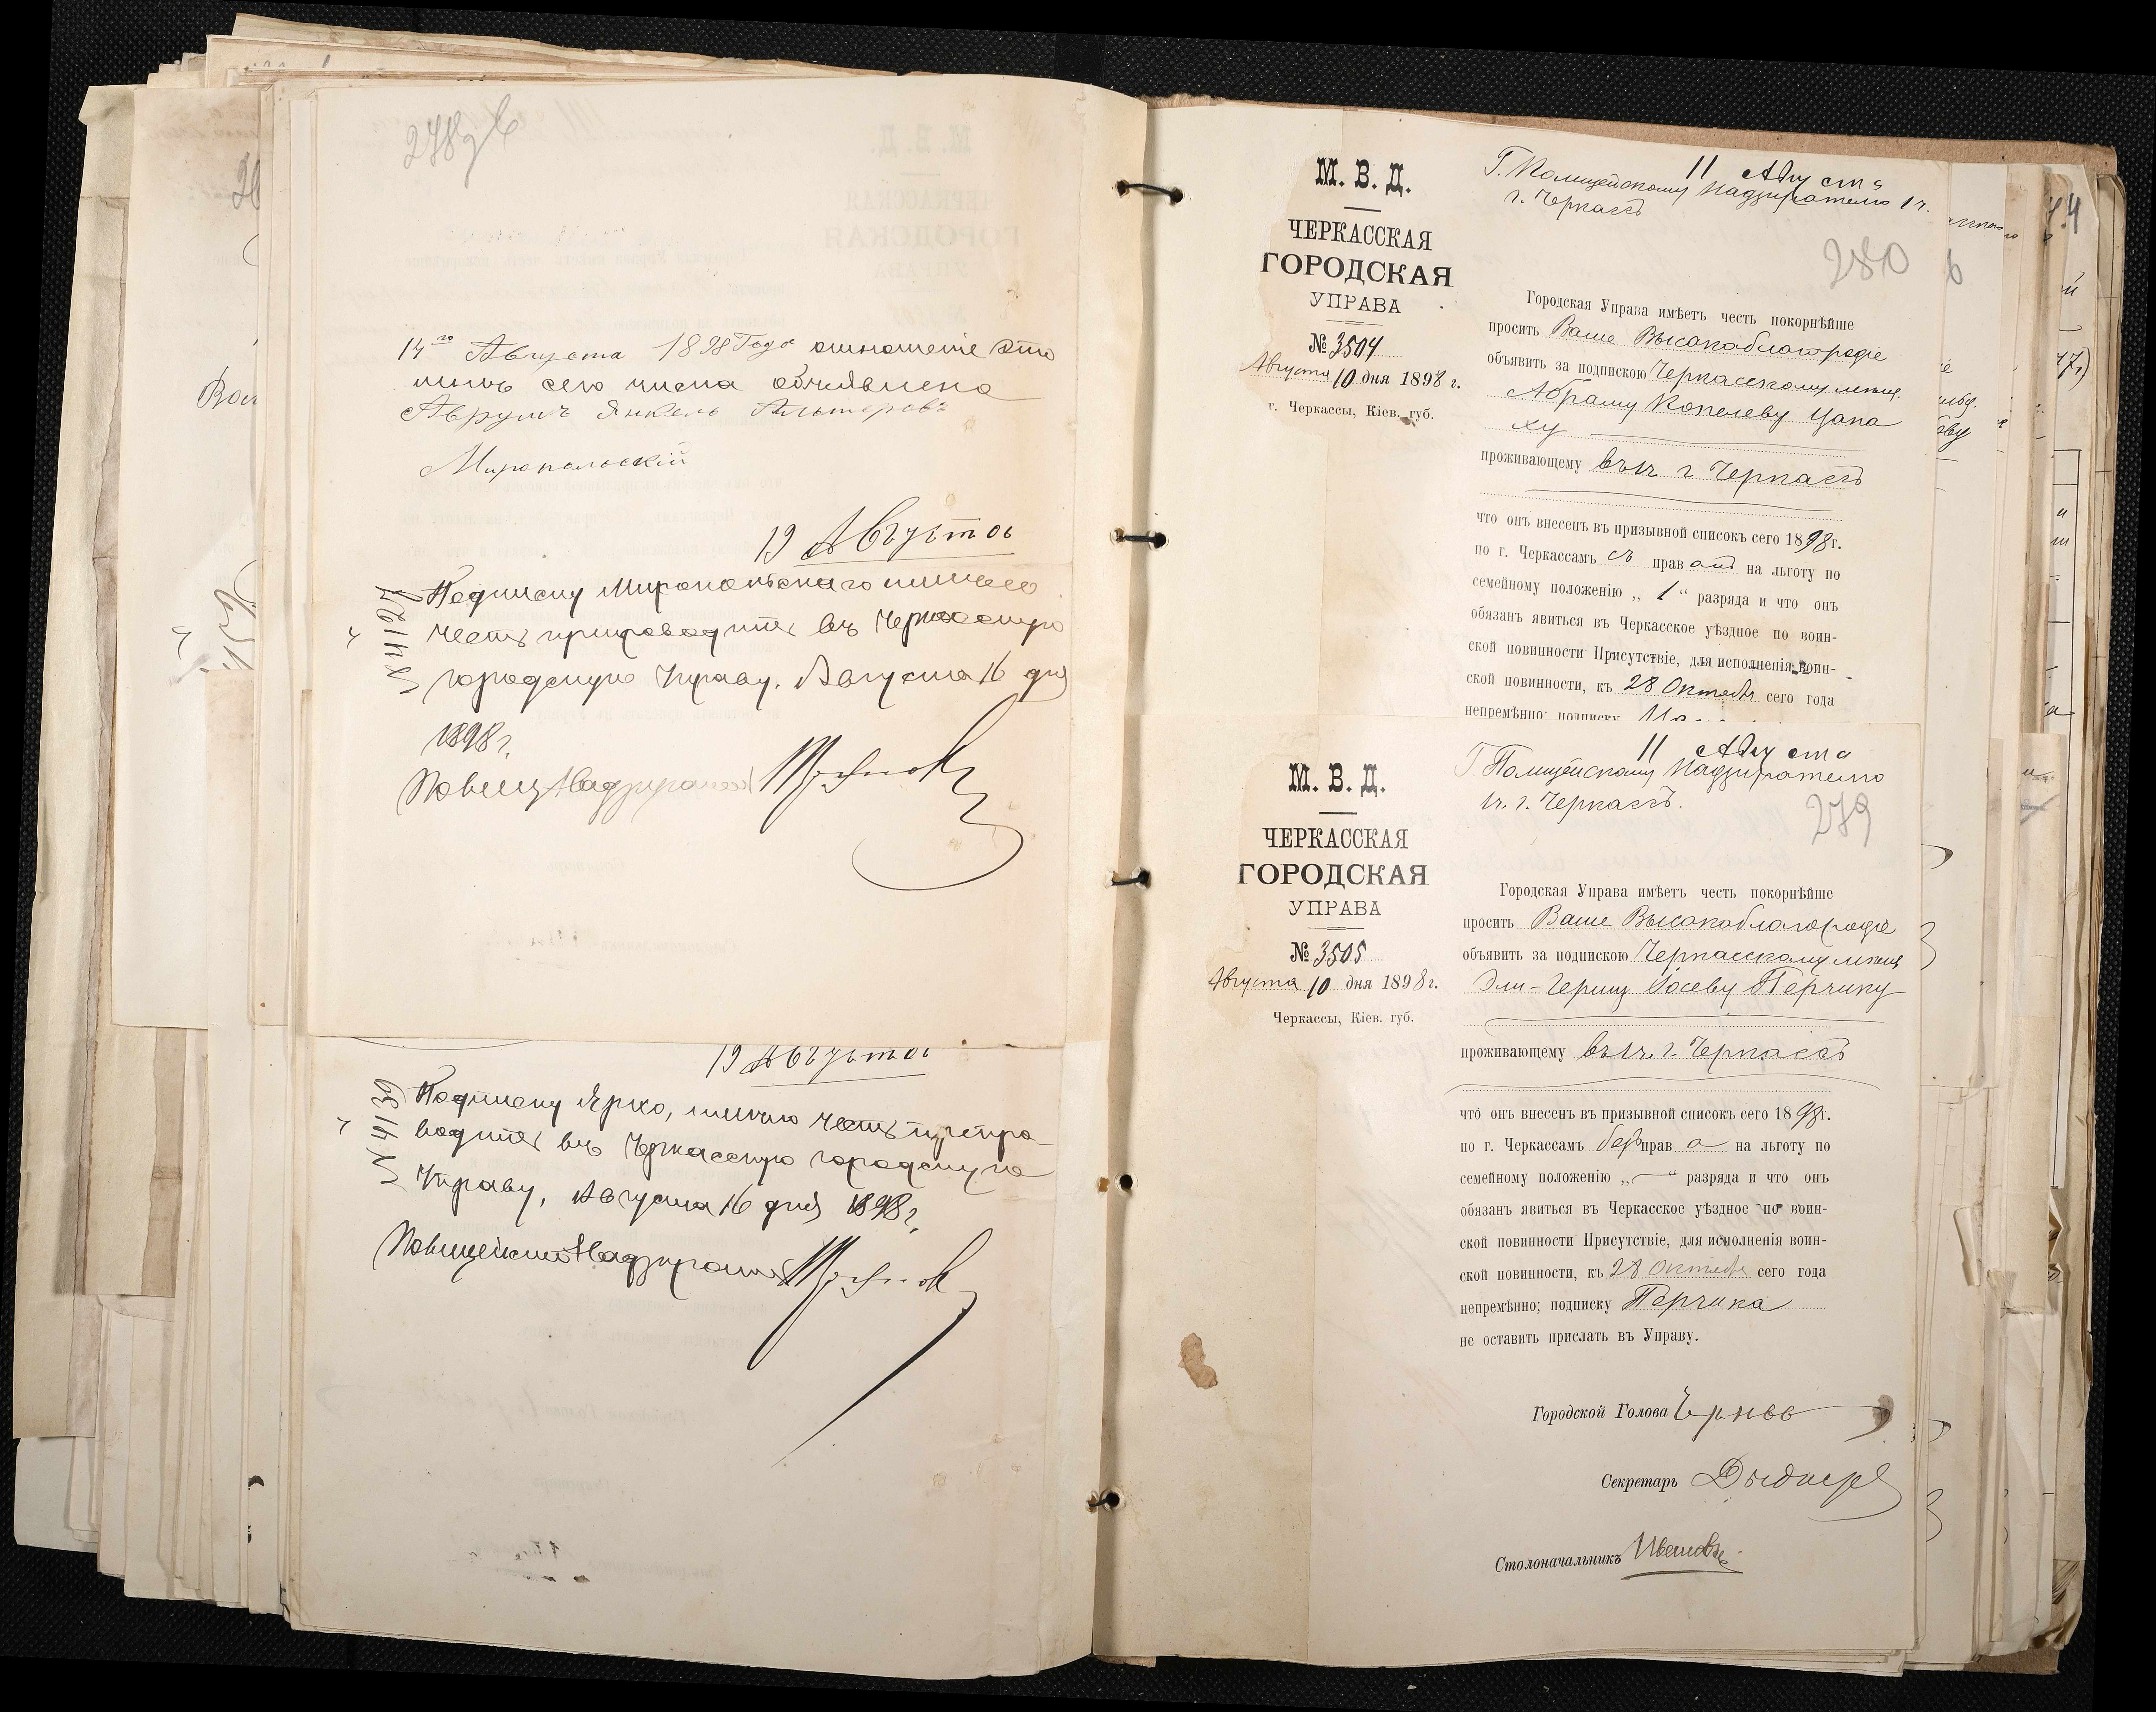 278 об
14го Августа 1898 Года отношение это
мнѣ сего числа объявлено
Аврумъ Янкель Альтеровъ
Миропольскій
19 Августа
№ 4127
Подписку Миропольскаго имѣю
честь препроводить въ Черкасскую
городскую Управу. Августа 16 дня
1898 г.
Полиц Надзиратель
19 Августа
№ 4130
Подписку Ярко, имѣю честь препро-
водить въ Черкасскую городскую
Управу, Августа 16 дня 1898 г.
Полицейский Надзиратель
М. В. Д.
ЧЕРКАССКАЯ
ГОРОДСКАЯ
УПРАВА
№ 3504
Августа 10 дня 1898 г.
г. Черкассы, Кіев. губ.
11 Августа
Г. Полицейскому Надзирателю 1 ч.
г. Черкассъ
280
Городская Управа имѣетъ честь покорнѣйше
просить Ваше Высокоблагородіе
объявить за подпискою Черкасскому мѣщ.
Абраму Копелеву Цапа
ху
проживающему въ 1ч. г Черкассъ
что онъ внесенъ въ призывной списокъ сего 1898 г.
по г. Черкассамъ съ прав омъ на льготу по
семейному положенію „ 1 “ разряда и что онъ
обязанъ явиться въ Черкасское уѣздное по воин-
ской повинности Присутствіе, для исполненія воин-
ской повинности, къ 28 Октября сего года
непремѣнно; подписку
М. В. Д.
ЧЕРКАССКАЯ
ГОРОДСКАЯ
УПРАВА
№ 3505
Августа 10 дня 1898 г.
Черкассы, Кіев. губ.
11 Августа
Г. Полицейскому Надзирателю
1ч. г. Черкассъ.
279
Городская Управа имѣетъ честь покорнѣйше
просить Ваше Высокоблагородіе
объявить за подпискою Черкасскому мѣщ
Эли-Гершу Іосеву Перчику
проживающему въ 1ч. г. Черкассъ
что онъ внесенъ въ призывной списокъ сего 1898 г.
по г. Черкассамъ безъ прав а на льготу по
семейному положенію „ — “ разряда и что онъ
обязанъ явиться въ Черкасское уѣздное по воин-
ской повинности Присутствіе, для исполненія воин-
ской повинности, къ 28 Октября сего года
непремѣнно; подписку Перчика
не оставить прислать въ Управу.
Городской Голова
Секретарь
Столоначальникъ